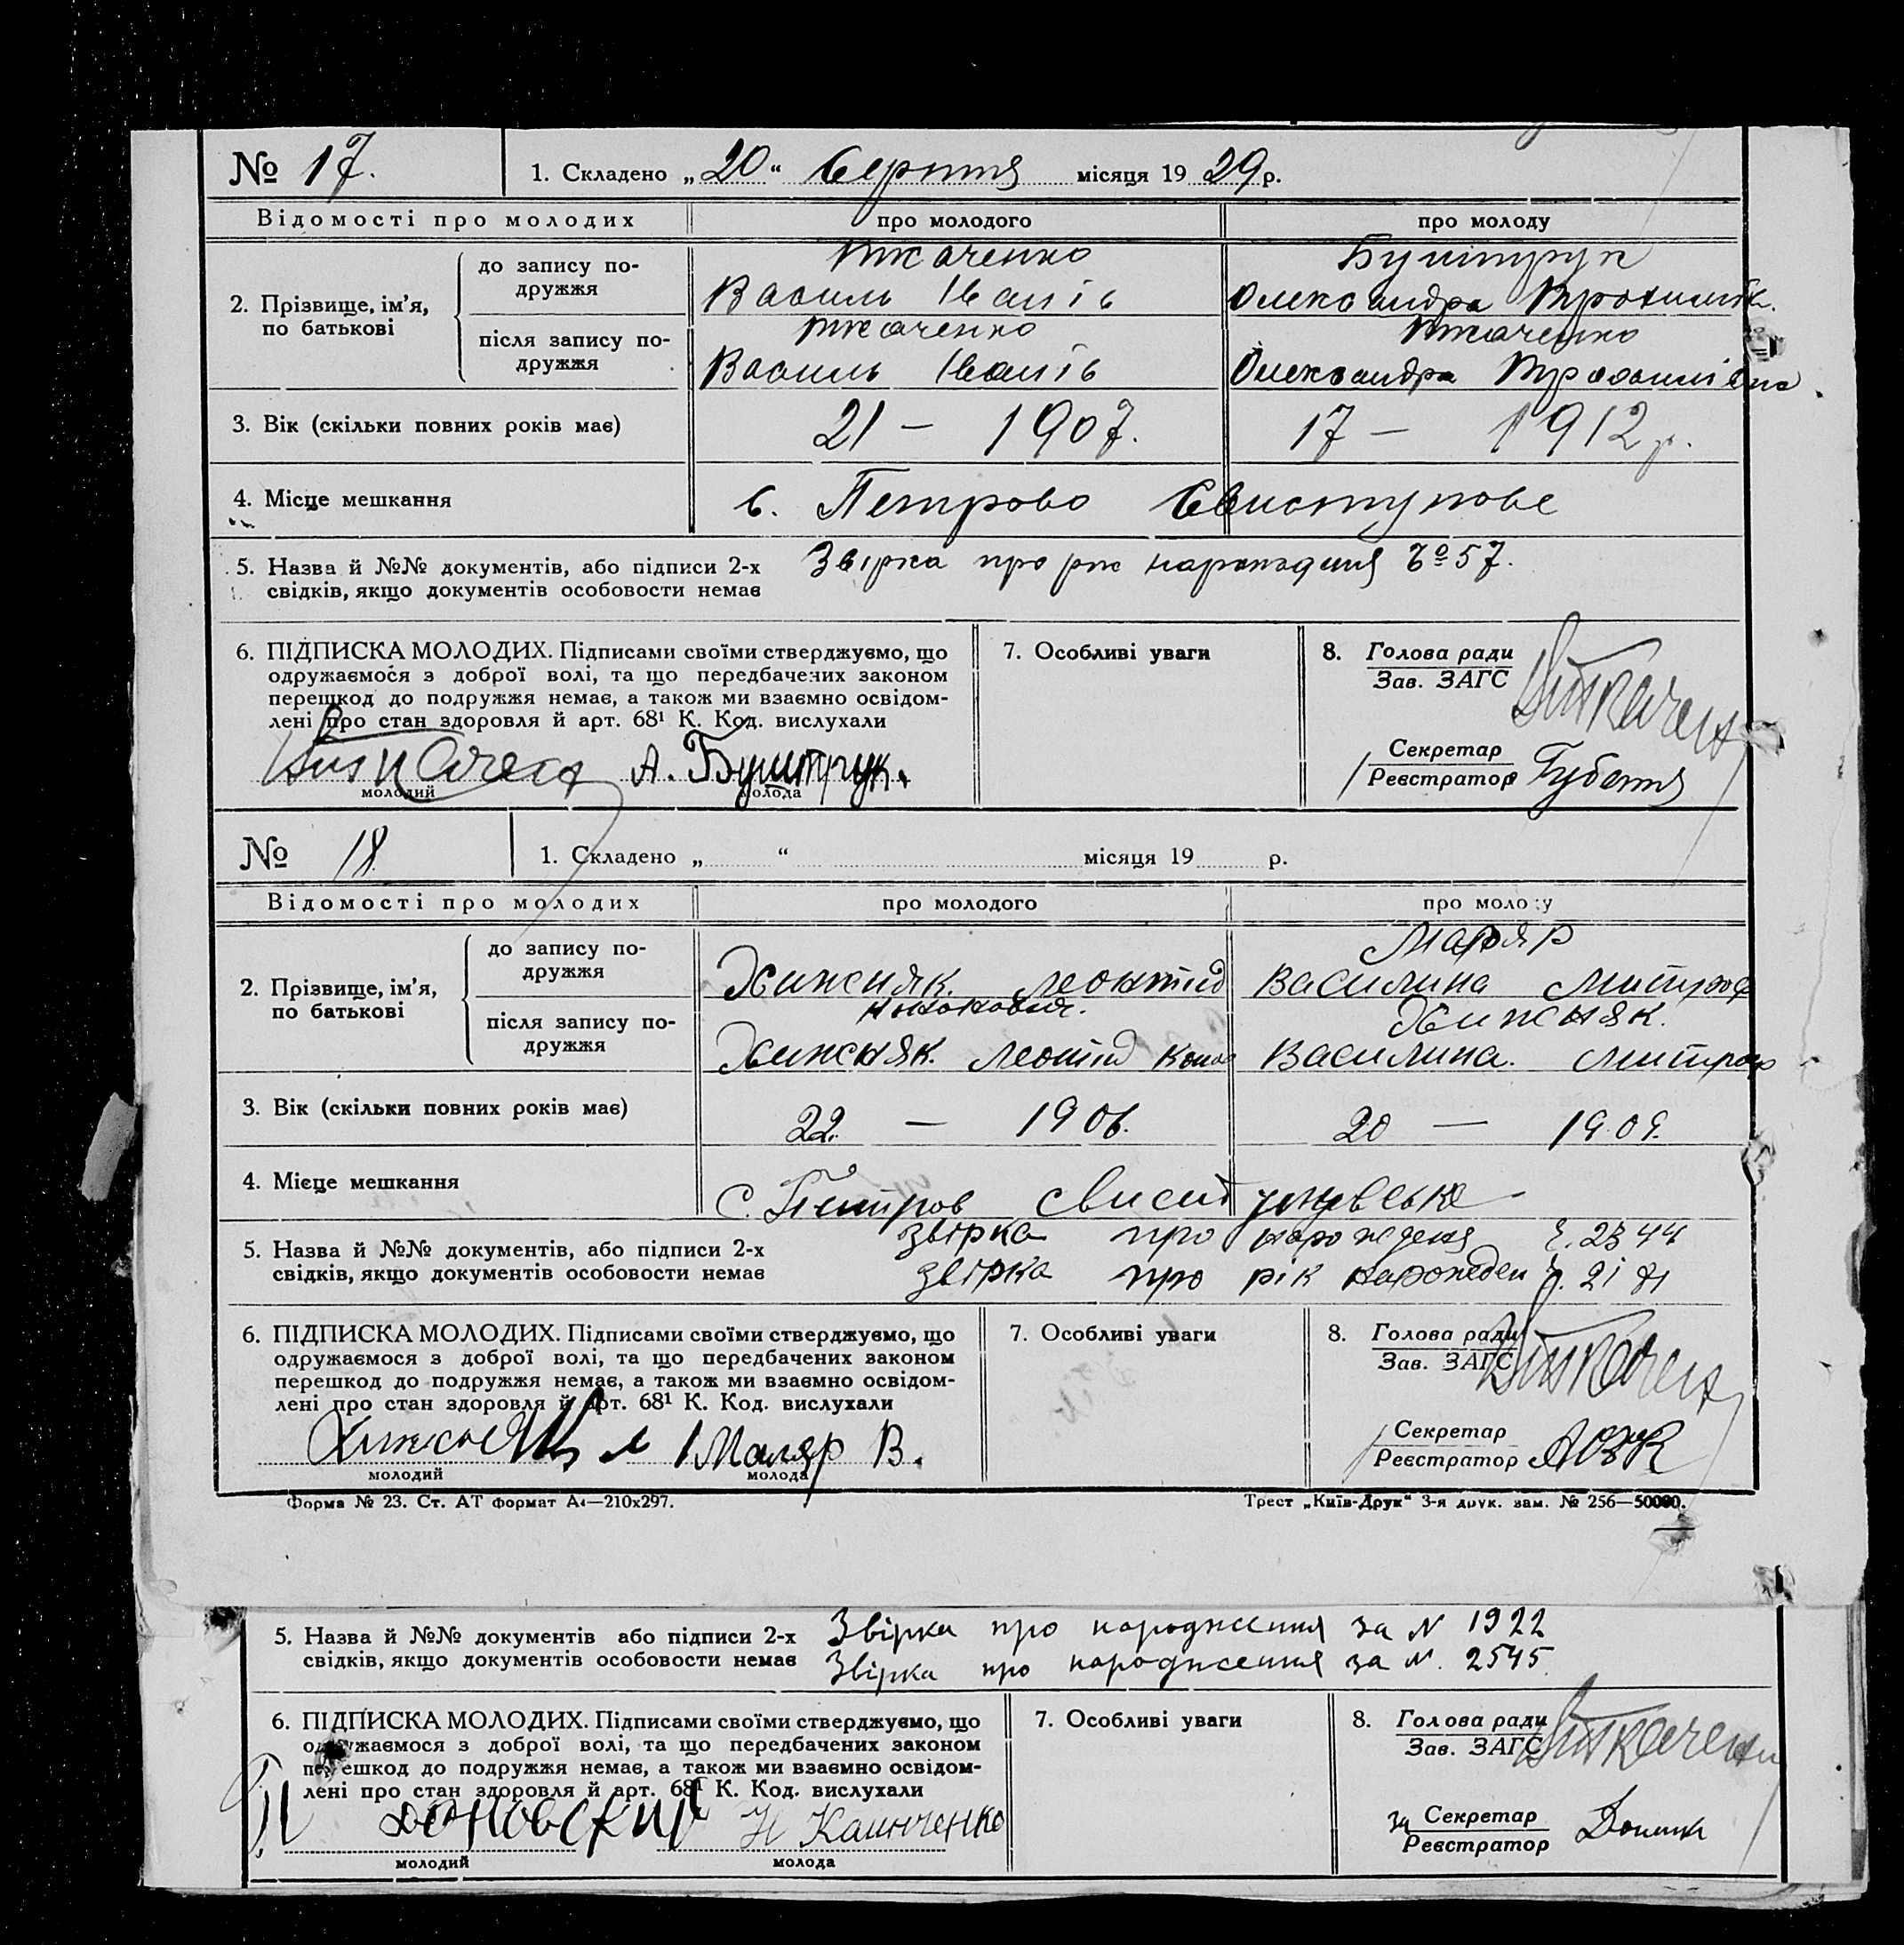 № 17. 1. Складено „20“ Серпня місяця 1929 р.
Відомості про молодих про молодого про молоду
2. Прізвище, ім’я, по батькові
до запису по-
дружжя
Ткаченко
Василь Іванів
Буштрук
Олександра
після запису по-
дружжя
Ткаченко
Василь Іванів
Ткаченко
Олександра
3. Вік (скільки повних років має) 21 — 1907. 17 — 1912 р.
4. Місце мешкання с. Петрово Свистунове
5. Назва й №№ документів, або підписи 2-х
свідків, якщо документів особовости немає
Звірка про рік нарождения 57.
6. ПІДПИСКА МОЛОДИХ. Підписами своїми стверджуємо, що
одружаємося з доброї волі, та що передбачених законом
перешкод до подружжя немає, а також ми взаємно освідом-
лені про стан здоровля й арт. 68¹ К. Код. вислухали
А. Буштрук.
молодий молода
7. Особливі уваги
8. Голова ради
Зав. ЗАГС
Секретар
Реєстратор
№ 18. 1. Складено „ “ місяця 19 р.
Відомості про молодих про молодого про молоду
2. Прізвище, ім’я,
по батькові
до запису по-
дружжя
Хижняк. Леонтід
Маляр
Василина Митроф
після запису по-
дружжя
Хижняк. Леонтід Коно
Хижняк.
Василина. Митроф
3. Вік (скільки повних років має) 22. — 1906. 20 — 1909.
4. Місце мешкання С. Петров Свистуновське
5. Назва й №№ документів, або підписи 2-х
свідків, якщо документів особовости немає
звірка про нарождения 2344
звірка про рік нарожден
6. ПІДПИСКА МОЛОДИХ. Підписами своїми стверджуємо, що
одружаємося з доброї волі, та що передбачених законом
перешкод до подружжя немає, а також ми взаємно освідом-
лені про стан здоровля й арт. 68¹ К. Код. вислухали
Хижняк Л Маляр В.
молодий молода
7. Особливі уваги
8. Голова ради
Зав. ЗАГС
Секретар
Реєстратор
Форма № 23. Ст. АТ формат А4—210х297. Трест „Київ-Друк“ 3-я друк. зам. № 256—50000.
5. Назва й №№ документів або підписи 2-х
свідків, якщо документів особовости немає
Звірка про народження за N 1922
Звірка про народження за N. 2545.
6. ПІДПИСКА МОЛОДИХ. Підписами своїми стверджуємо, що
одружаємося з доброї волі, та що передбачених законом
перешкод до подружжя немає, а також ми взаємно освідом-
лені про стан здоровля й арт. 68¹ К. Код. вислухали
молодий молода
7. Особливі уваги
8. Голова ради
Зав. ЗАГС
за Секретар
Реєстратор